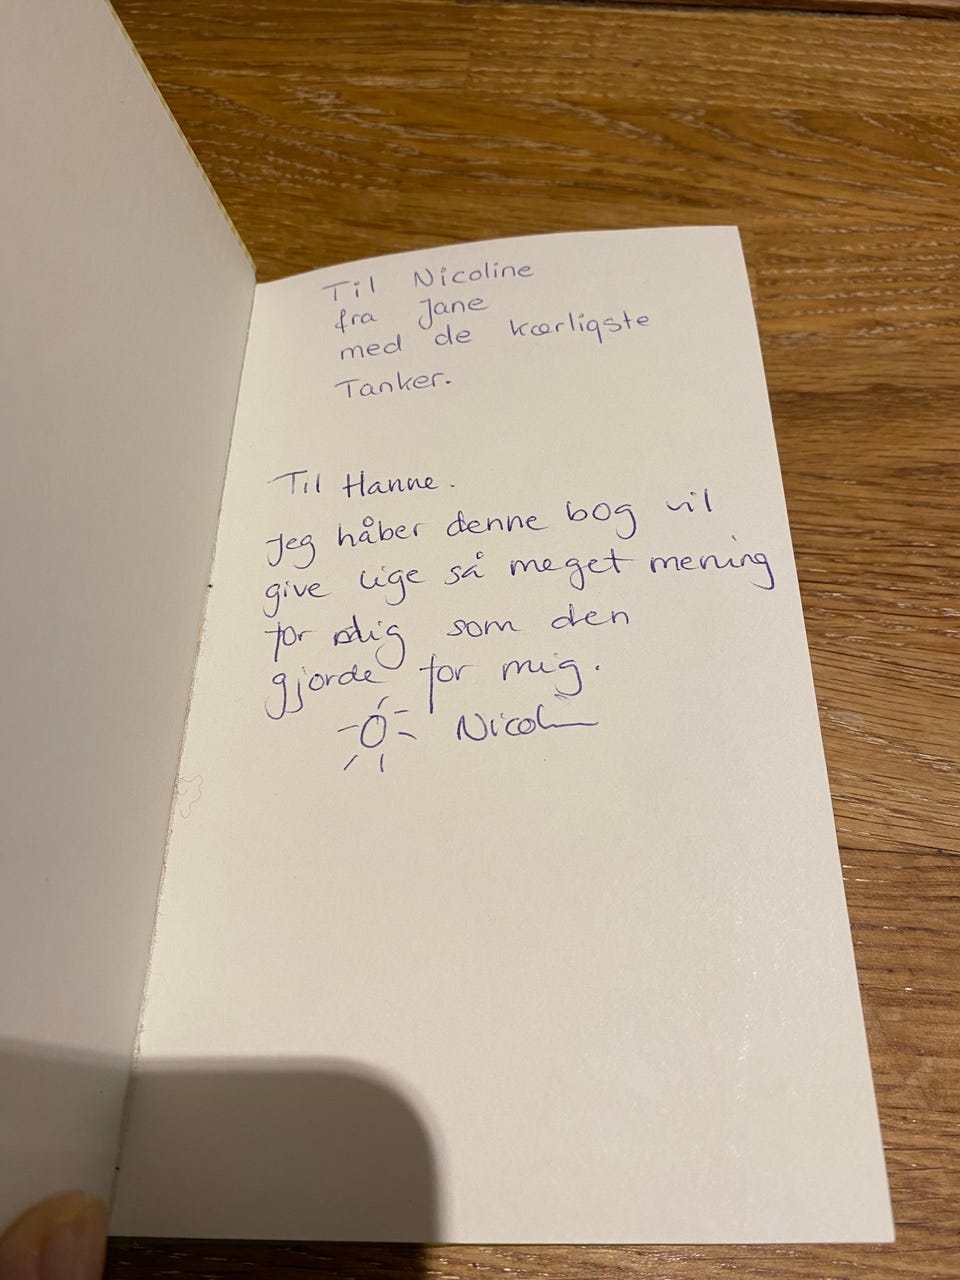 Til Nicoline
fra Jane
med de kærligste
Tanker.
Til Hanne.
Jeg håber denne bog vil
give lige så meget mening
for dig som den
gjorde for mig.